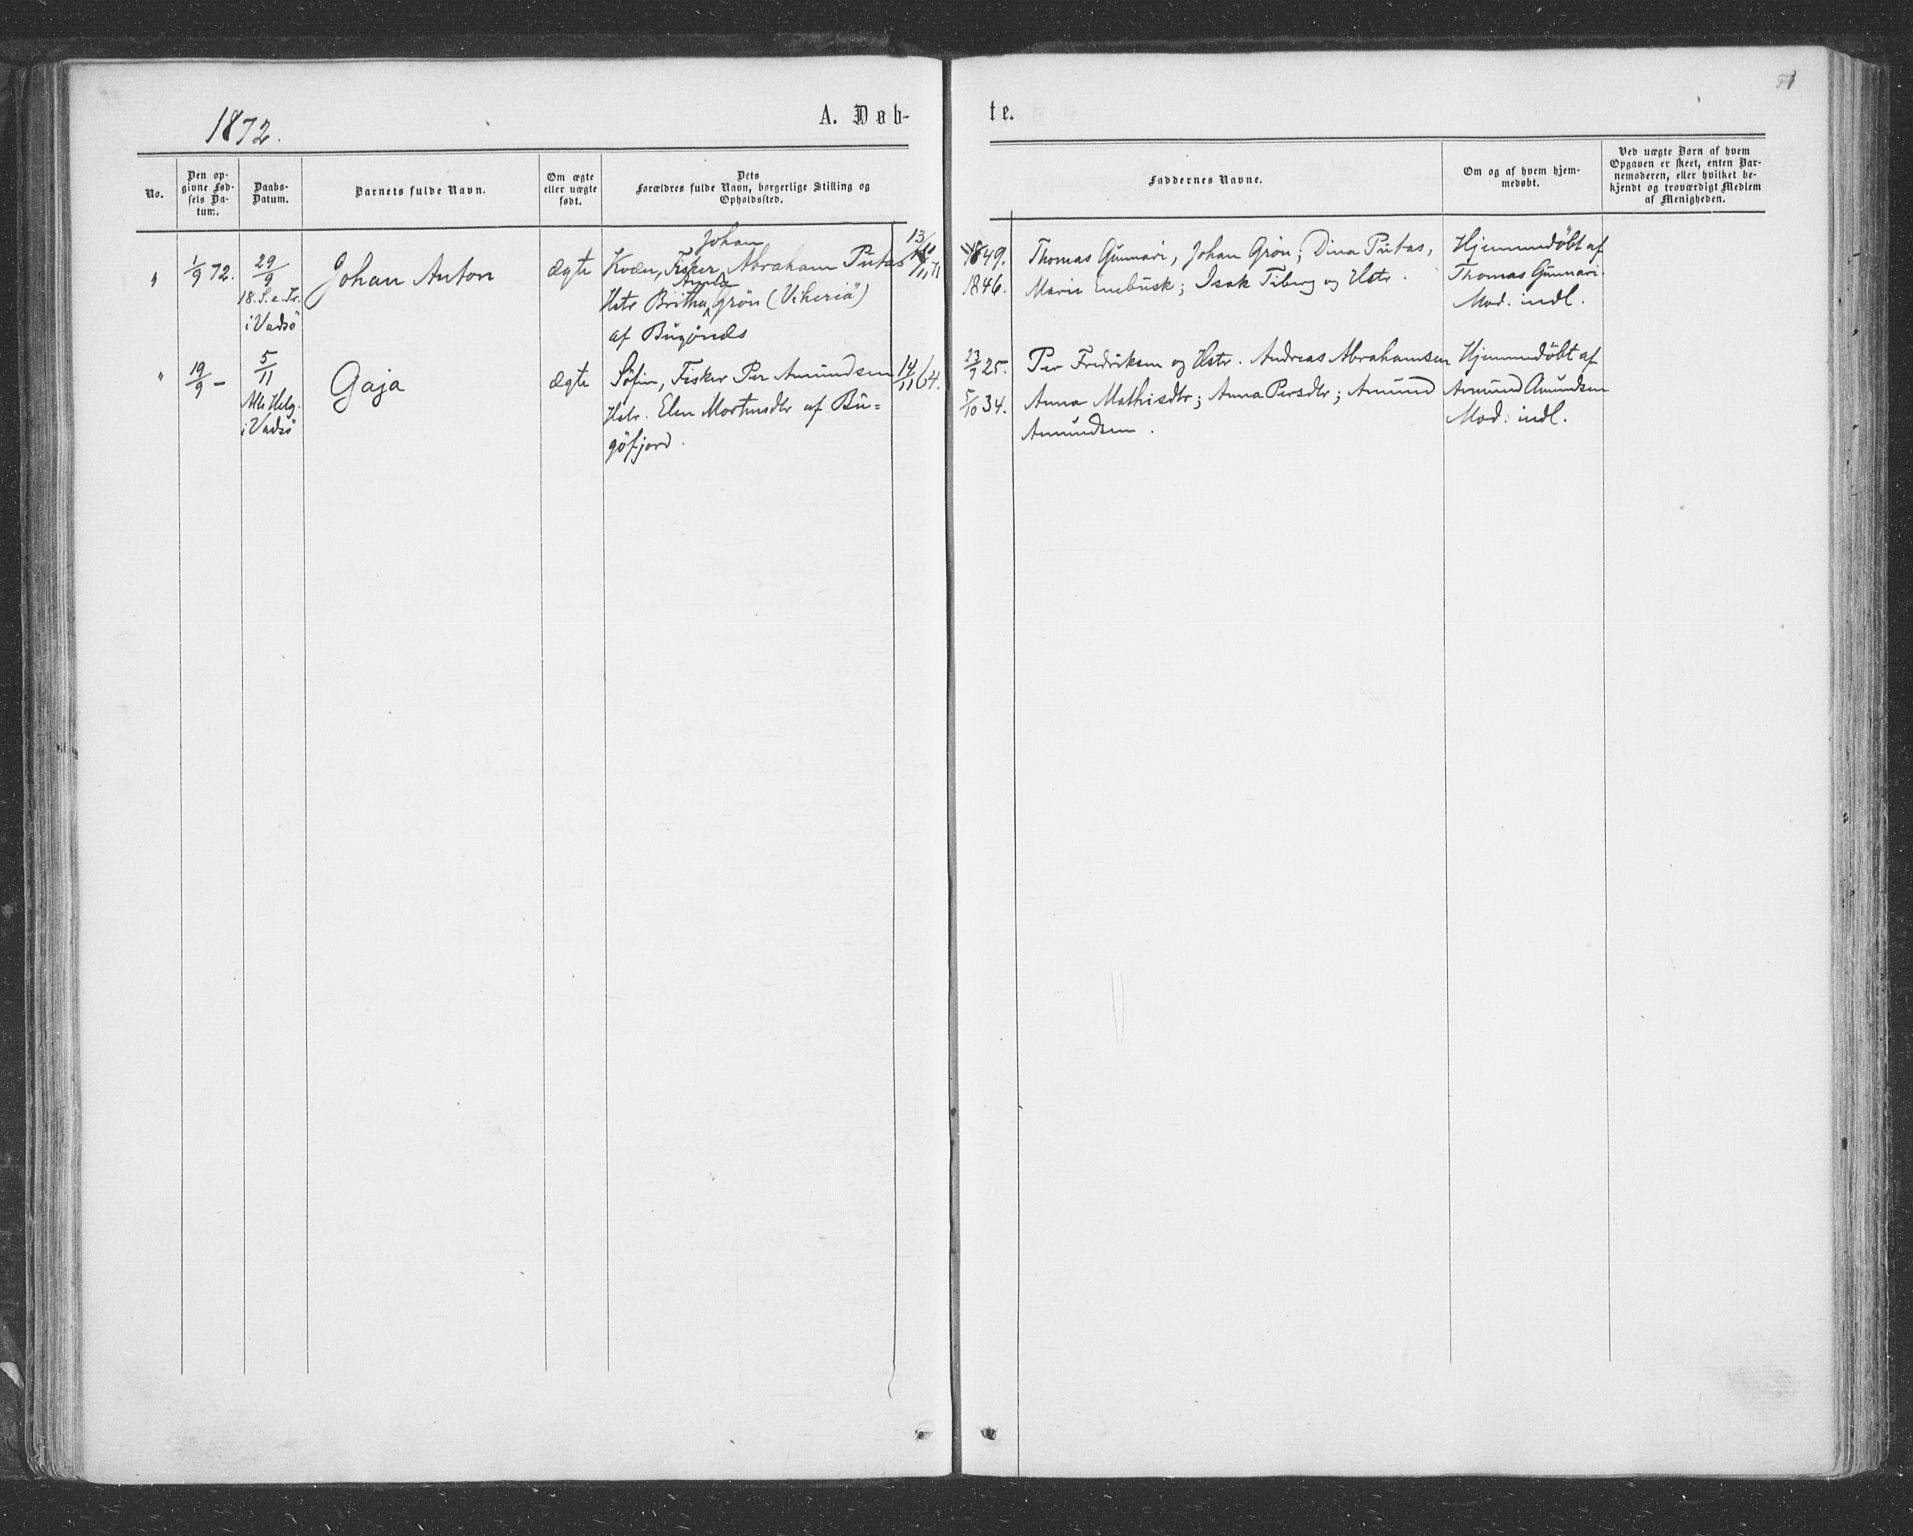 51
1872.
A. Døb-
te.
No.
Den op-
givne Fød-
sels Da-
tum.
Daabs-
Datum.
Barnets fulde Navn.
Om ægte
eller uægte
født.
Dets
Forældres fulde Navn, borgerlige Stilling og
Opholdssted.
Faddernes Navne.
Om og af hvem hjem-
medøbt.
Ved uægte Børn af hvem
Opgaven er skeet, enten Bar-
nemoderen, eller hvilket be-
kjendt og troværdigt Medlem
af Menigheden.
"
1/9 72.
29/9
18. S. e. Tr.
i Vadsö
Johan Anton
ægte
Johan
Kvæn, Fisker, Abraham Putas
Hstr Britha Grön (Viheriä)
af Bugönæs
13/
1849.
1846.
Thomas Gunnari, Johan Grön, Dina Putas,
Marie Enebusk; Isak Tiberg og Hstr.
Hjemmedöbt af
Thomas Gunnari.
Mod. indl.
"
19/9 –
5/11
Alle Helg.
i Vadsö
Gaja
ægte
Söfin, Fisker Per Amundsen
Hstr. Elen Mortensdtr af Bu=
göfjord.
14/11 64.
23/9 25.
5/10 34.
Per Fredriksen og Hstr. Andreas Abrahamsen
Anna Mathisdtr; Anna Persdtr; Amund
Amundsen.
Hjemmedöbt af
Amund Amundsen
Mod. indl.